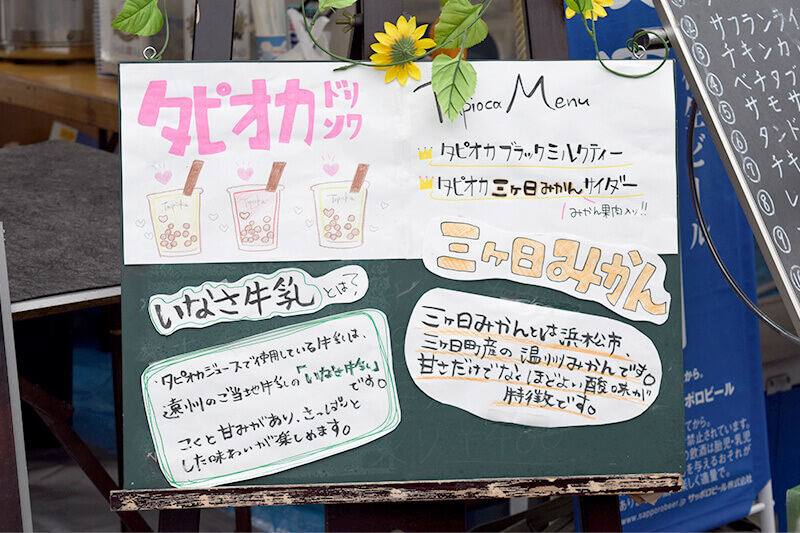 タピオカ
ドリンク
Tapioca Menu
タピオカブラックミルクティー
タピオカ三ヶ日みかんサイダー
みかん果肉入り!!
Tapioka
Tapioka
Tapioka
いなさ牛乳とは?
タピオカジュースで使用している牛乳は、
遠州のご当地牛乳の「いなさ牛乳」
です。
こくと甘みがあり、さっぱりと
した味わいが楽しめます。
三ヶ日みかん
三ヶ日みかんとは浜松市、
三ヶ日町産の温州みかんです。
甘さだけでなくほどよい酸味が
特徴です。
サフランライ
チキンカ
ベナタブ
サモサ
タンド
チキ
ナ
レ
ビール
ポロビール
てから。
禁止されています。
の飲酒は胎児・乳児
を与えるおそれが
適量で。
www.sapporobeer.jp/ サッポロビール株式会社